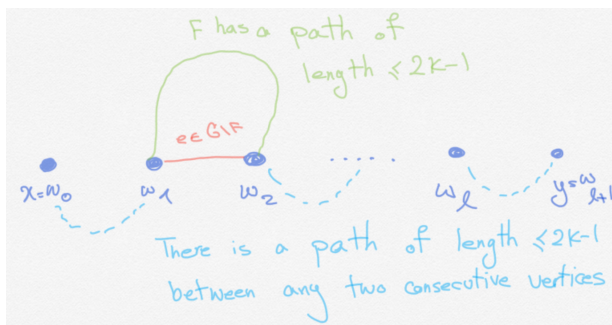 F has a path of
length ≤ 2K-1
e ∈ G\F
.....
x=w₀ w₁ w₂ w_ℓ y=w_{ℓ+1}
There is a path of length ≤ 2K-1
between any two consecutive vertices